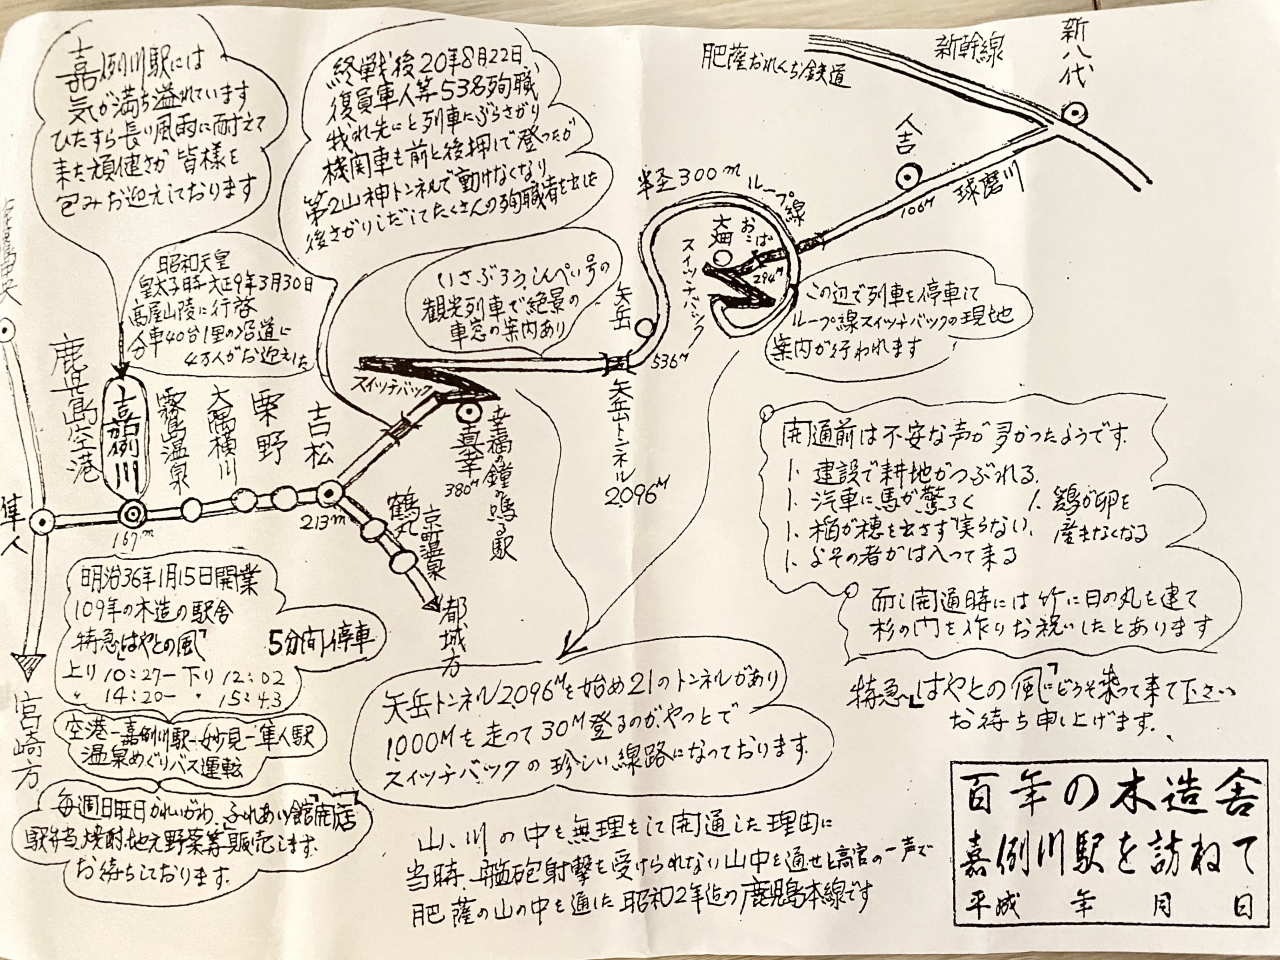 嘉例川駅には
気が満ち溢れています
ひたすら長い風雨に耐えて
来た頑健さが皆様を
包みお迎えしております
終戦後20年8月22日
復員軍人等53名殉職
我れ先にと列車にぶらさがり
機関車も前と後押しで登ったが
第2山神トンネルで動けなくなり
後さがりしだしてたくさんの殉職者を出した
肥薩おれんぢ鉄道
新幹線
新八代
人吉
106M
球磨川
半径300M
ループ線
大畑
おこば
294M
スイッチバック
この辺で列車を停車して
ループ線スイッチバックの現地
案内が行われます
いさぶろう、しんぺい号の
観光列車で絶景の
車窓の案内あり
矢岳
536M
矢岳トンネル
2,096M
昭和天皇
皇太子時大正9年3月30日
高屋山陵に行啓
台車40台1里の沿道に
4万人がお迎えした
スイッチバック
真幸
380M
幸福の鐘の鳴る駅
鹿児島空港
嘉例川
167m
霧島温泉
大隅横川
栗野
吉松
213m
鶴丸
京町温泉
都城方
隼人
宮崎方
明治36年1月15日開業
109年の木造の駅舎
特急「はやとの風」
5分間停車
上り10:27ー下り12:02
〃14:20ー〃15:43
空港ー嘉例川駅ー妙見ー隼人駅
温泉めぐりバス運転
毎週日旺日かれいがわ、ふれあい館「開店」
駅弁当、焼酎、地元野菜等販売します。
お待ちしております。
矢岳トンネル2,096Mを始め21のトンネルがあり
1000Mを走って30M登るのがやっとで
スイッチバックの珍しい線路になっております。
開通前は不安な声が多かったようです。
1、建設で耕地がつぶれる。
1、汽車に馬が驚ろく
1、鶏が卵を
産まなくなる
1、稲が穂を出さず実らない、
1、よその者がは入って来る
而し開通時には竹に日の丸を建て
杉の門を作りお祝いしたとあります
特急「はやとの風」にどうぞ乗って来て下さい
お待ち申し上げます。
山、川の中を無理をして開通した理由に
当時、艦砲射撃を受けられない山中を通せと高官の一声で
肥薩の山の中を通した昭和2年迄の鹿児島本線です
百年の木造舎
嘉例川駅を訪ねて
平成 年 月 日